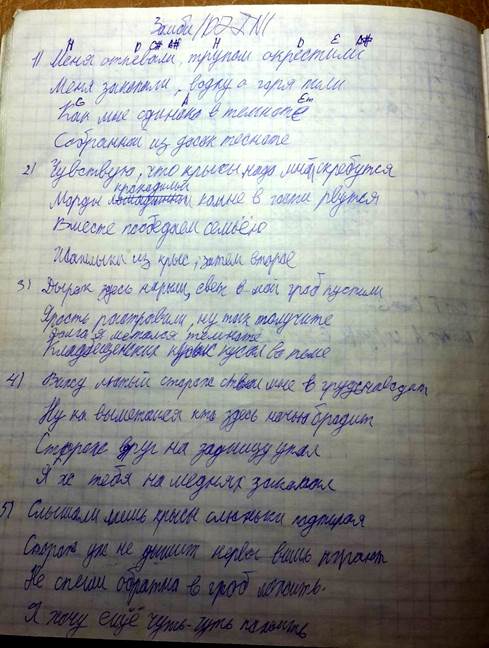 Зомби
H D C# A# H D E D#
1) Меня отпевали, трупом окрестили
Меня закопали, водку с горя пили
G A Em
Как мне одиноко в темноте
Собранной из досок тесноте
2) Чувствую, что крысы надо мной скребутся
Морды крокодильи ко мне в гости рвутся
Вместе пообедаем семьёю
Шашлыки из крыс, затем второе
3) Дырок здесь нарыли, свет в мой гроб пустили
Ярость растровили, ну так получите
Долго я метался в темноте
Кладбищенских кустов во тьме
4) Вижу лютый сторож ствол мне в грудь наводит
Ну ка выметайся кто здесь ночью бродит
Сторож вдруг на задницу упал
Я ж тебя на медня закопал
5) Слышали лишь крысы слюньки подтирая
Сторож уж не дышит нервы вишь играют
Не спеши обратно в гроб ложить.
Я хочу ещё чуть-чуть пожить